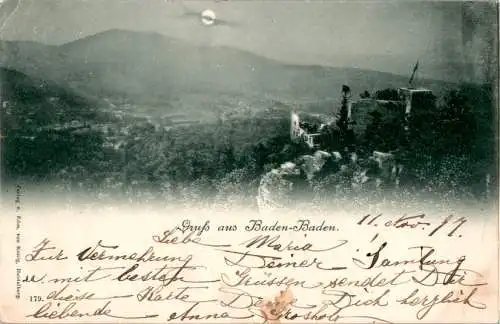 Gruß aus Baden-Baden.
11. Nov. 97.
Liebe Maria
Zur Vermehrung Deiner Samlung
mit besten Grüssen sendet Dir
diese Karte Deine Dich herzlich
liebende Anna
Verlag v. Edm. von König, Heidelberg.
179.